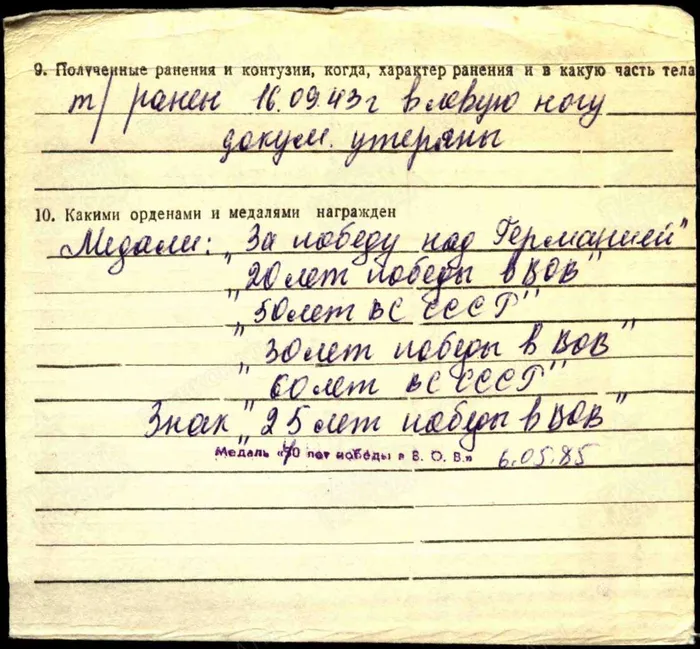 9. Полученные ранения и контузии, когда, характер ранения и в какую часть тела
т/ранен 16.09.43г в левую ногу
докум. утеряны
10. Какими орденами и медалями награжден
Медали: "За победу над Германией"
"20 лет победы в ВОВ"
"50 лет ВС СССР"
"30 лет победы в ВОВ"
"60 лет ВС СССР"
Знак "25 лет победы в ВОВ"
Медаль «40 лет победы в В. О. В.» 6.05.85